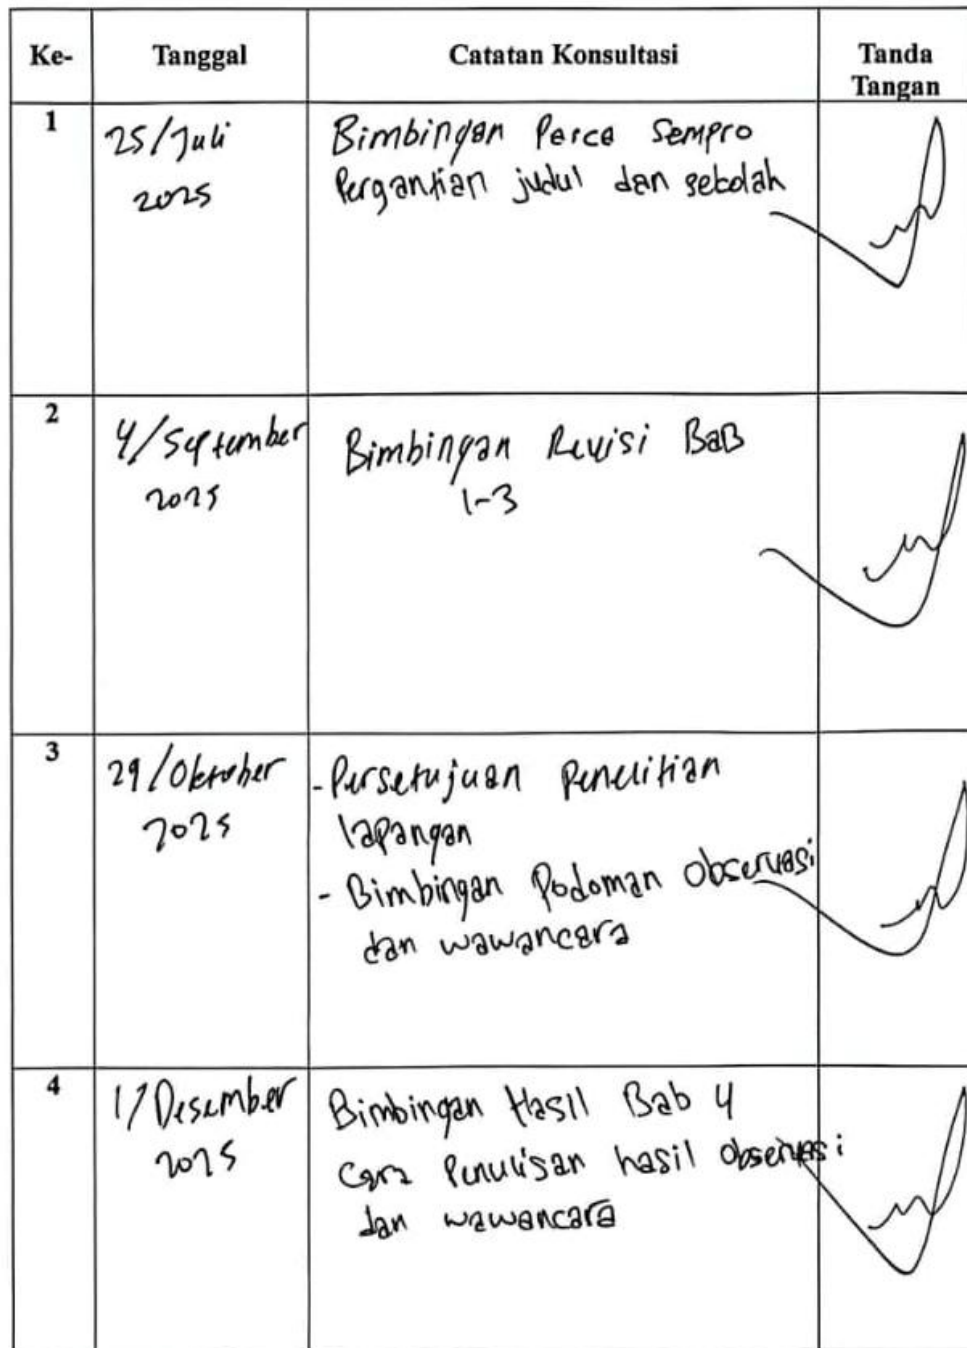 Ke- Tanggal Catatan Konsultasi Tanda
Tangan
1 25/Juli Bimbingan Perca Sempro
2025 Pergantian judul dan sekolah
2 4/September Bimbingan Revisi BaB
2025 1-3
3 29/Oktober - Persetujuan Penelitian
2025 lapangan
- Bimbingan Podoman Observasi
dan wawancara
4 Desember Bimbingan Hasil Bab 4
2025 Cara Penulisan hasil observasi
dan wawancara